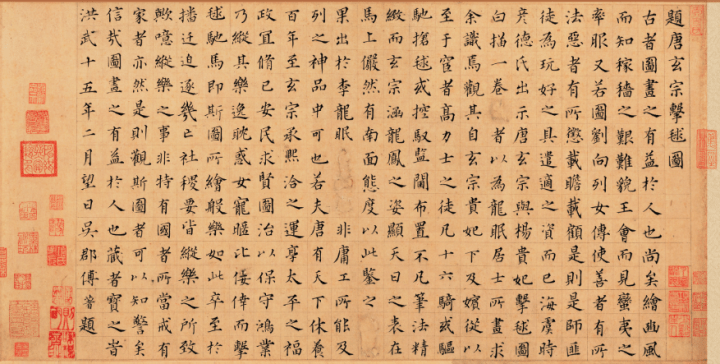 題唐玄宗擊毬圖
古者圖畫之有益於人也尚矣繪豳風
而知稼穡之艱難貌王會而見蠻夷之
率服又若圖劉向列女傳使善者有所
法惡者有所懲載瞻載顧是則是師匪
徒為玩好之具遣適之資而已海虞時
彥德氏出示唐玄宗與楊貴妃擊毬圖
白描一卷者以為龍眠居士所畫求
余識焉觀其自玄宗貴妃下及嬪從以
至于宦者高力士之徒凡十六騎或驅
馳搶毬或控馭監闘布置不凡筆法精
緻而玄宗涵龍鳳之姿顯天日之表在
馬上儼然有南面態度以此鑒之
果出於李龍眠 非庸工所能及
列之神品中可也若夫唐有天下休養
百年至玄宗承熙洽之運享太平之福
政宜脩已安民求賢圖治以保守鴻業
乃縱其樂逸耽惑女寵暱比倖而擊
毬馳馬即斯圖所繪般樂如此卒至於
播迁迫逐幾亡社稷要皆縱樂之所致
歟噫縱樂之事非特有國者所當戒有
家者亦然是則觀斯圖者可以知警矣
信哉圖畫之有益於人也藏者寶之旹
洪武十五年二月望日吳郡傅著題